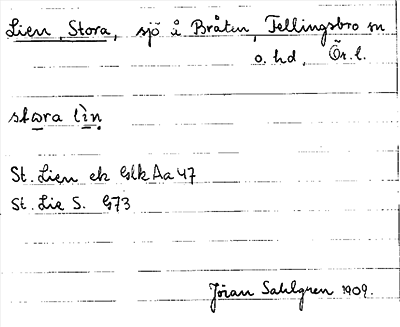 Lien, Stora, sjö å Bråten, Fellingsbro sn
o. hd, Ör. l.
stora lìn
St. Lien ek GlkAa47
St. Lie S. G73
Jöran Sahlgren 1909.